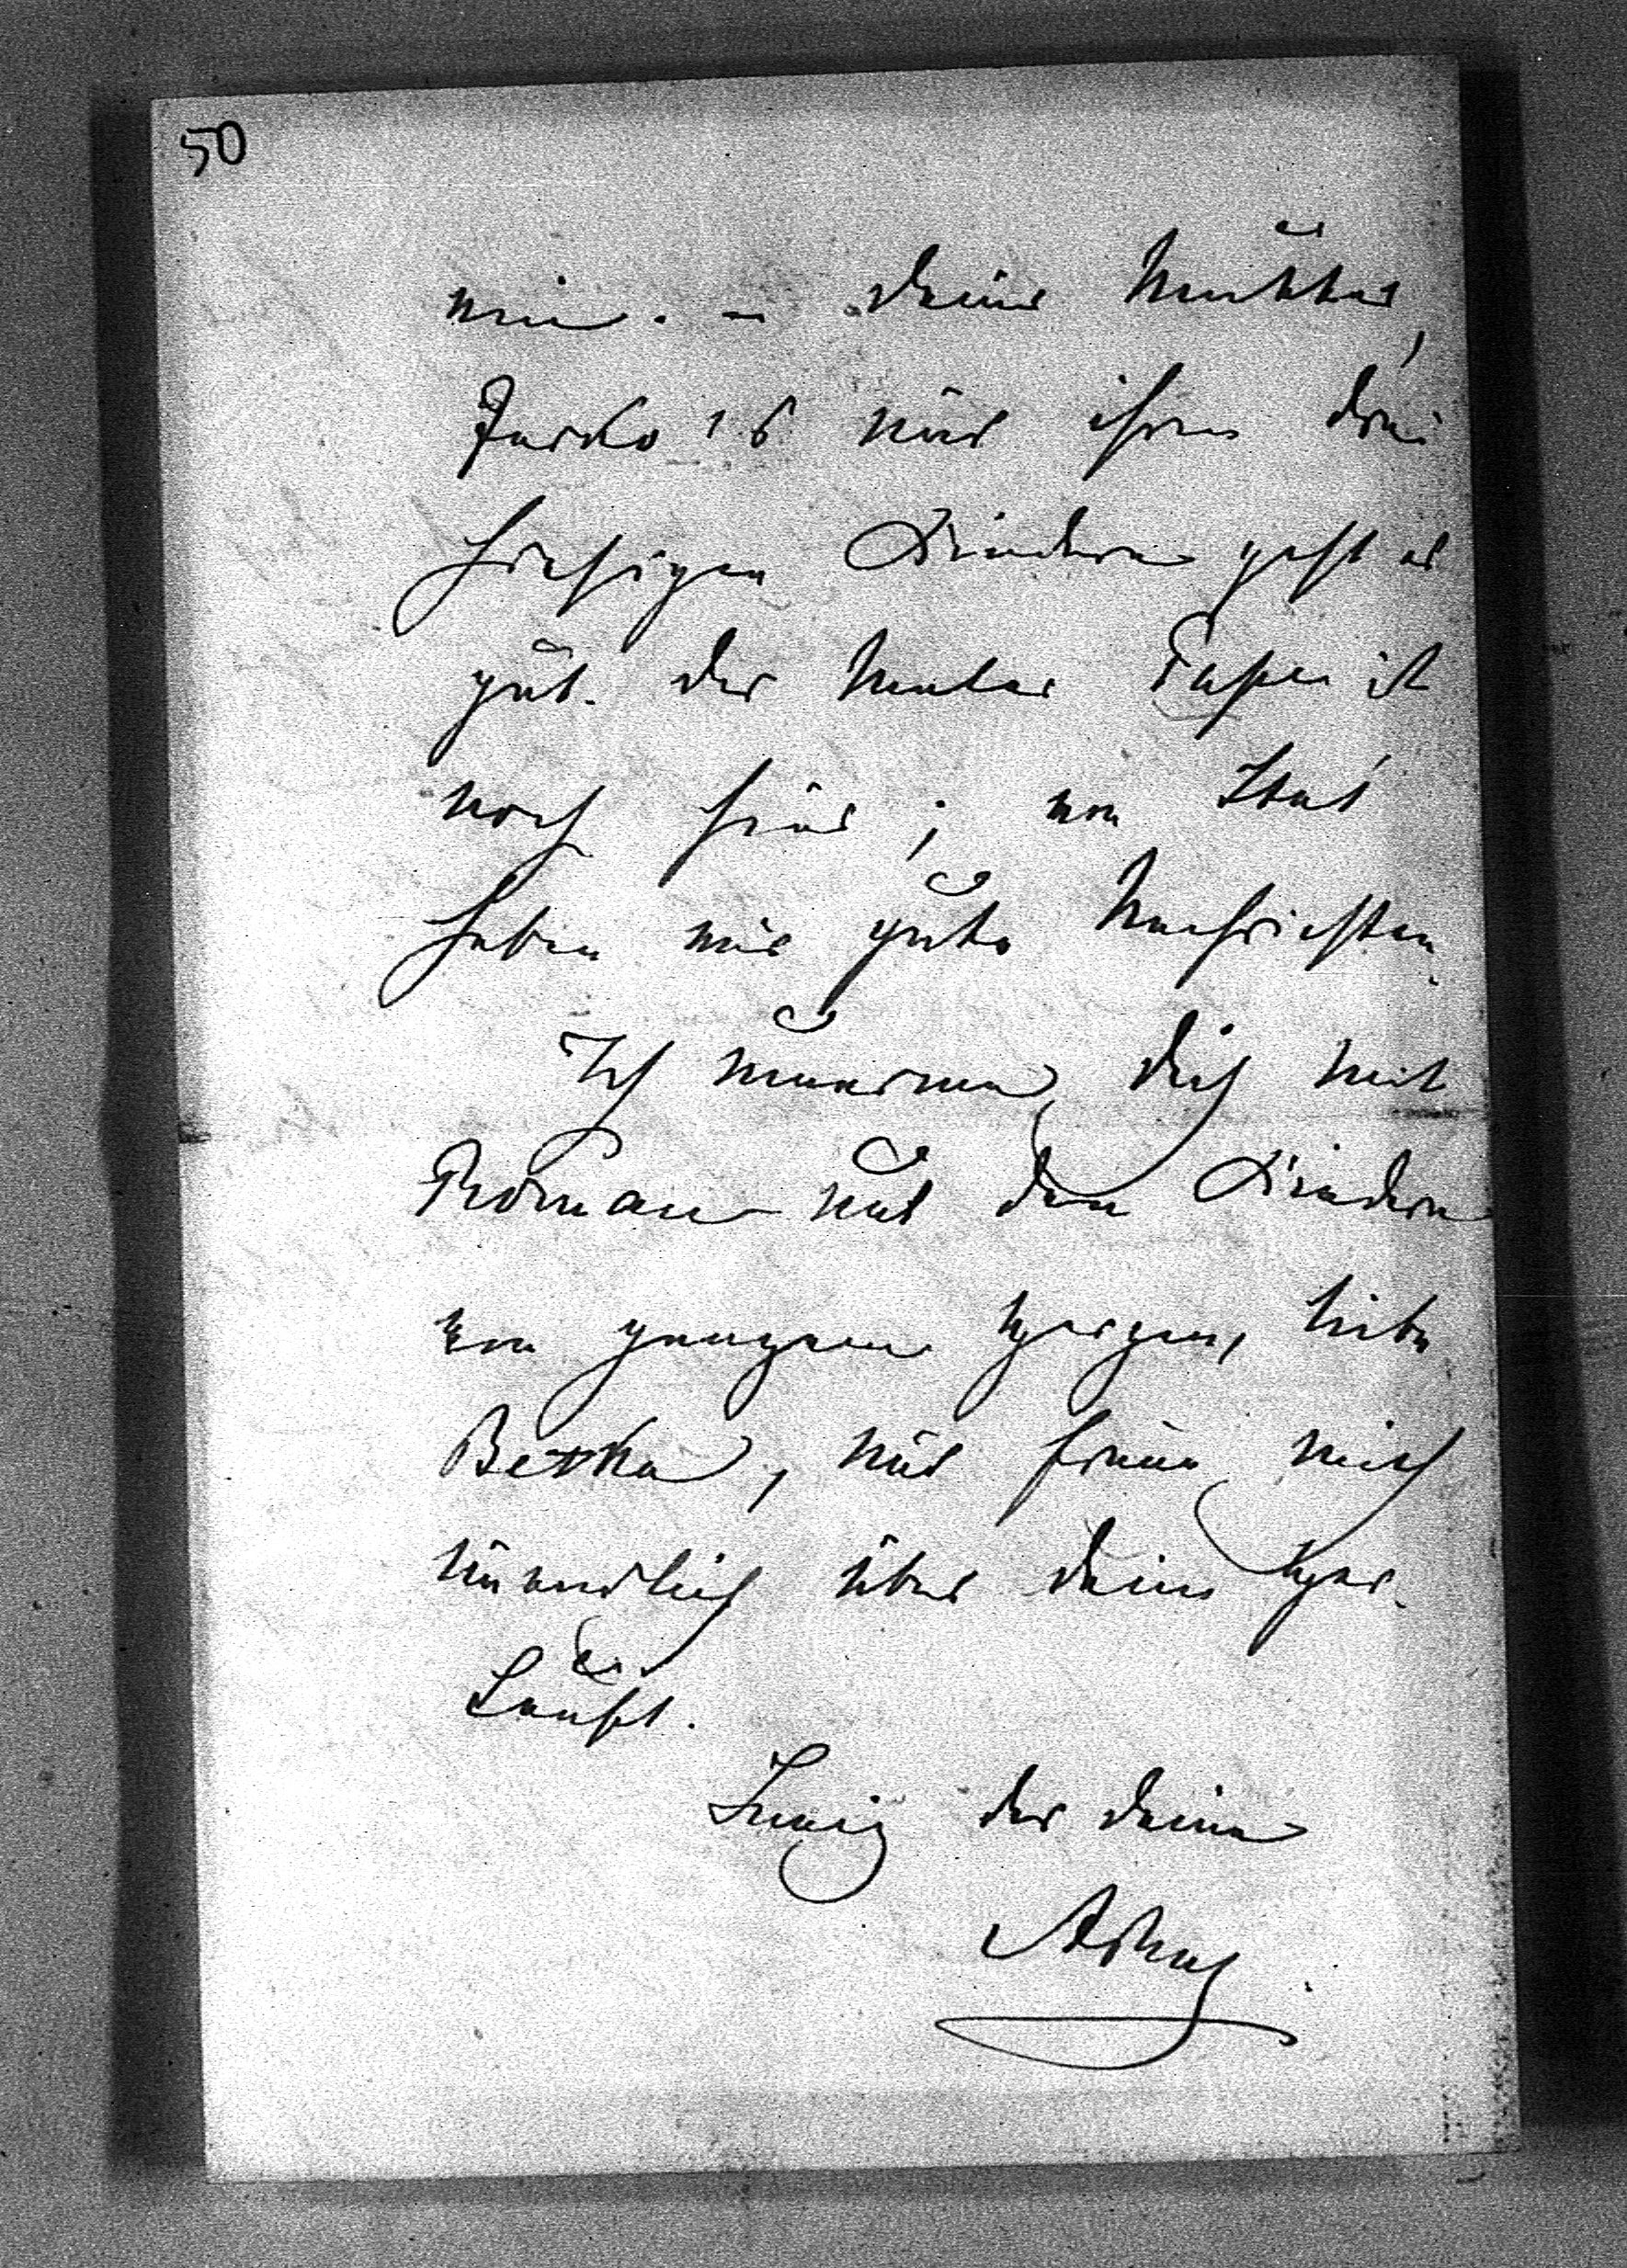 50
nie. – Deiner Mutter,
Jarko's u ihren drei
hiesigen Kindern geht es
gut. Der Maler Papa ist
noch hier; von
haben wir gute Nachrichten.
Ich umarme Dich mit
Roman und den Kindern
von ganzem Herzen, liebe
Betka, und freue mich
unendlich über Deine Her-
kunft.
Ewig der Deine